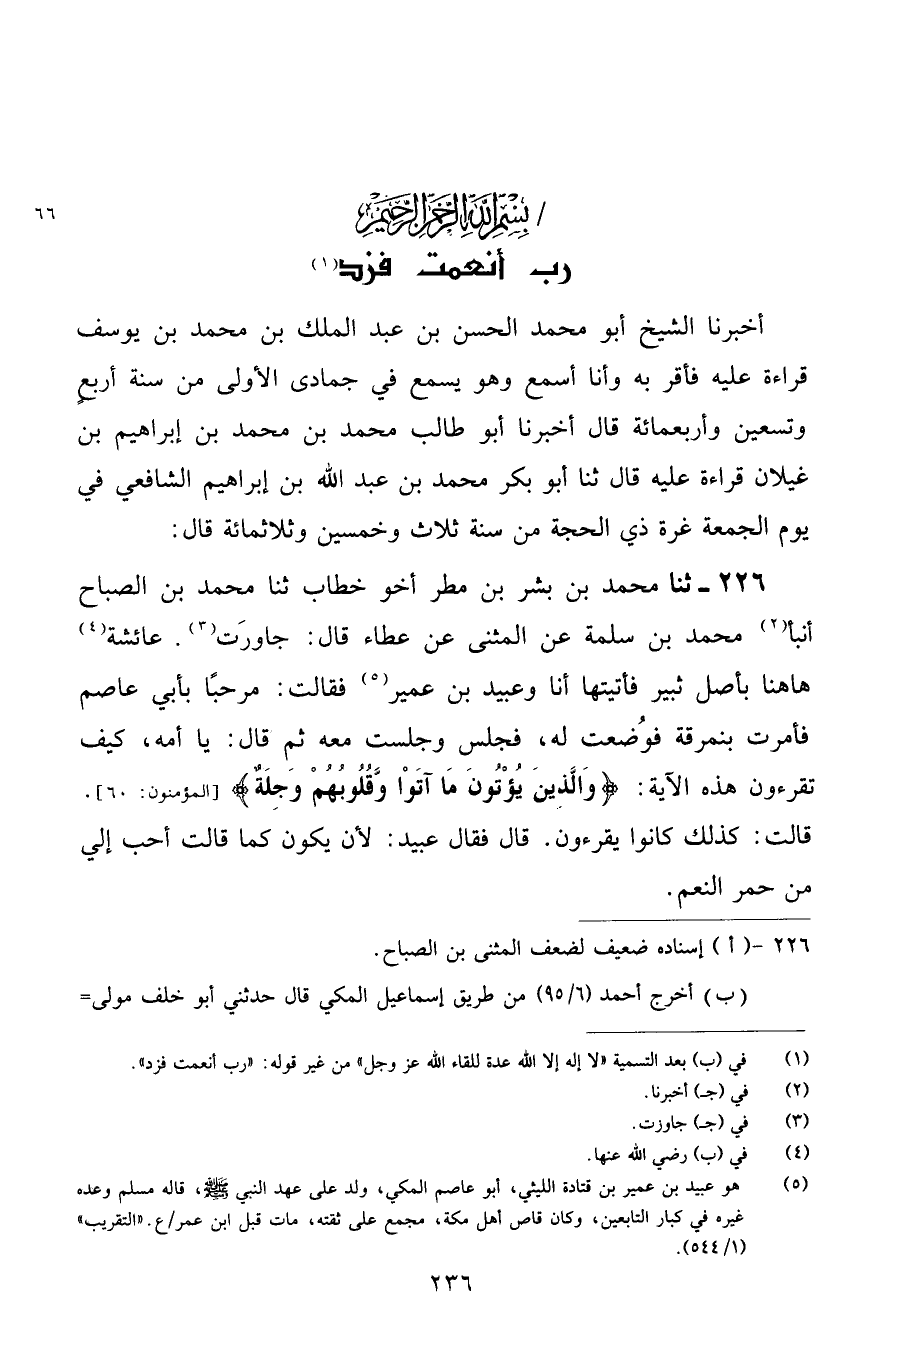 ٦٦
/ بسم الله الرحمن الرحيم
رب أنعمت فزد(١)
أخبرنا الشيخ أبو محمد الحسن بن عبد الملك بن محمد بن يوسف
قراءة عليه فأقر به وأنا أسمع وهو يسمع في جمادى الأولى من سنة أربعٍ
وتسعين وأربعمائة قال أخبرنا أبو طالب محمد بن محمد بن إبراهيم بن
غيلان قراءة عليه قال ثنا أبو بكر محمد بن عبد الله بن إبراهيم الشافعي في
يوم الجمعة غرة ذي الحجة من سنة ثلاث وخمسين وثلاثمائة قال:
٢٢٦ ـ ثنا محمد بن بشر بن مطر أخو خطاب ثنا محمد بن الصباح
أنبأ(٢) محمد بن سلمة عن المثنى عن عطاء قال: جاورَت(٣) . عائشة(٤)
هاهنا بأصل ثبير فأتيتها أنا وعبيد بن عمير(٥) فقالت: مرحبًا بأبي عاصم
فأمرت بنمرقة فوُضعت له، فجلس وجلست معه ثم قال: يا أمه، كيف
تقرءون هذه الآية: ﴿وَالَّذِينَ يُؤْتُونَ مَا آتَوْا وَّقُلُوبُهُمْ وَجِلَةٌ﴾ [المؤمنون: ٦٠].
قالت: كذلك كانوا يقرءون. قال فقال عبيد: لأن يكون كما قالت أحب إلي
من حمر النعم.
٢٢٦ -( أ ) إسناده ضعيف لضعف المثنى بن الصباح.
(ب) أخرج أحمد (٩٥/٦) من طريق إسماعيل المكي قال حدثني أبو خلف مولى=
(١) في (ب) بعد التسمية «لا إله إلا الله عدة للقاء الله عز وجل» من غير قوله: «رب أنعمت فزد».
(٢) في (جـ) أخبرنا.
(٣) في (جـ) جاوزت.
(٤) في (ب) رضي الله عنها.
(٥) هو عبيد بن عمير بن قتادة الليثي، أبو عاصم المكي، ولد على عهد النبي ﷺ، قاله مسلم وعده
غيره في كبار التابعين، وكان قاص أهل مكة، مجمع على ثقته، مات قبل ابن عمر/ع. «التقريب»
(٥٤٤/١).
٢٣٦